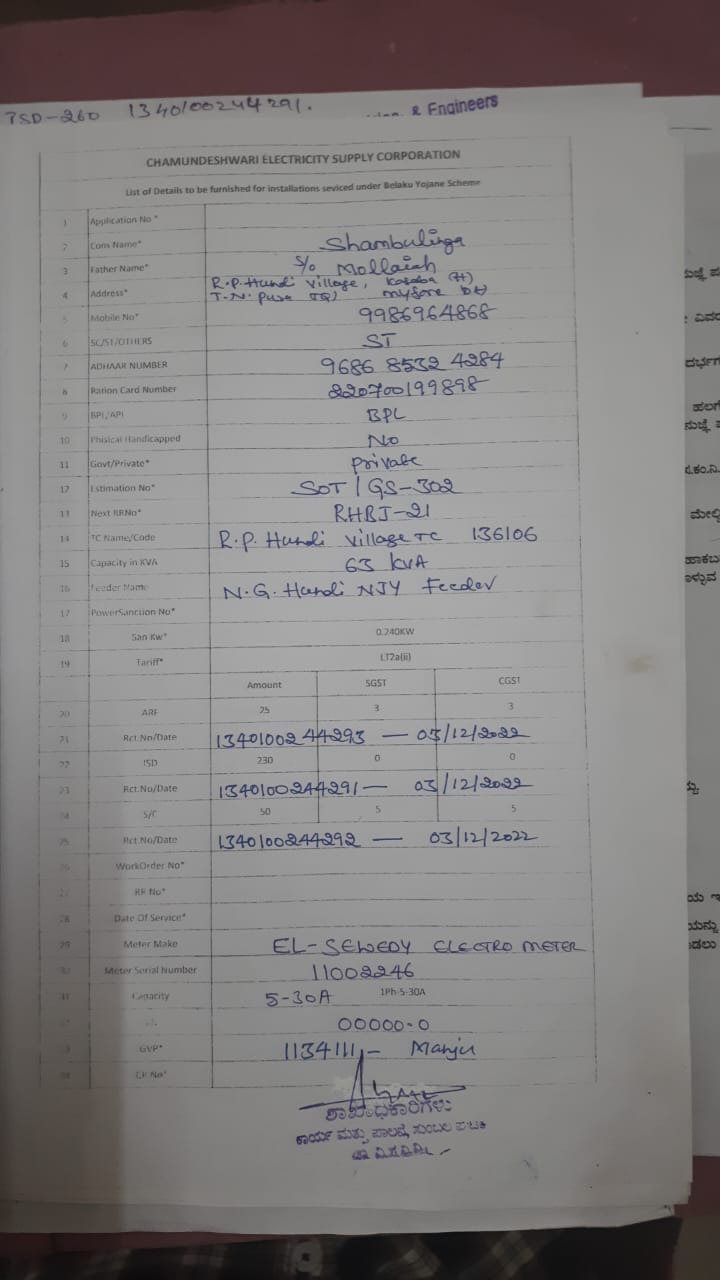 ISD-260 1340100244291.
& Engineers
CHAMUNDESHWARI ELECTRICITY SUPPLY CORPORATION
List of Details to be furnished for installations seviced under Belaku Yojane Scheme
1 Application No *
2 Cons Name* Shambulinga
3 Father Name* S/o Mollaiah
4 Address* R.P. Hundi Village, Kasaba (H)
T.N. Pura (TQ) Mysore Dt
5 Mobile No* 9986964868
6 SC/ST/OTHERS ST
7 ADHAAR NUMBER 9686 8532 4284
8 Ration Card Number 220700199898
9 BPL/APL BPL
10 Phisical Handicapped No
11 Govt/Private* Private
12 Estimation No* SOT/GS-302
13 Next RRNo* RHBJ-21
14 TC Name/Code R.P. Hundi Village TC 136106
15 Capacity in KVA 63 KVA
16 Feeder Name N.G. Hundi NJY Feeder
17 PowerSanction No*
18 San Kw* 0.240KW
19 Tariff* LT2a(ii)
Amount SGST CGST
20 ARF 25 3 3
21 Rct.No/Date 1340100244293 — 03/12/2022
22 ISD 230 0 0
23 Rct.No/Date 1340100244291 — 03/12/2022
24 S/C 50 5 5
25 Rct.No/Date 1340100244292 — 03/12/2022
26 WorkOrder No*
27 RR No*
28 Date Of Service*
29 Meter Make EL-SEWEDY ELECTRO METER
30 Meter Serial Number 11002246
31 Capacity 5-30A 1Ph-5-30A
00000-0
33 GVP* 1134111,- Manju
34 CR No*
ಶಾಖಾಧಿಕಾರಿಗಳು
ಕಾರ್ಯ ಮತ್ತು ಪಾಲನೆ,